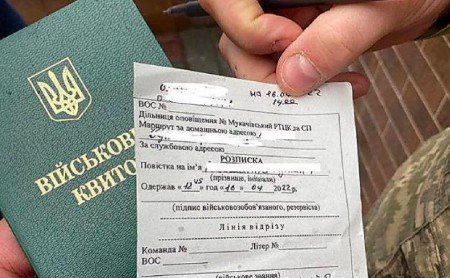 ВІЙСЬКОВ
КВИТО
на 16.04
14.00
ВОС №
Дільниця оповіщення № Мукачівський РТЦК та СП
Маршрут за домашньою адресою
За службовою адресою
РОЗПИСКА
Повістка на ім'я
(прізвище, ініціали)
Одержав «12 45 » год «16 » 04 2022 г.
(підпис військовозобов'язаного, резервіста)
Лінія відрізу
Команда № Літер №
ВОС
(військове звання)